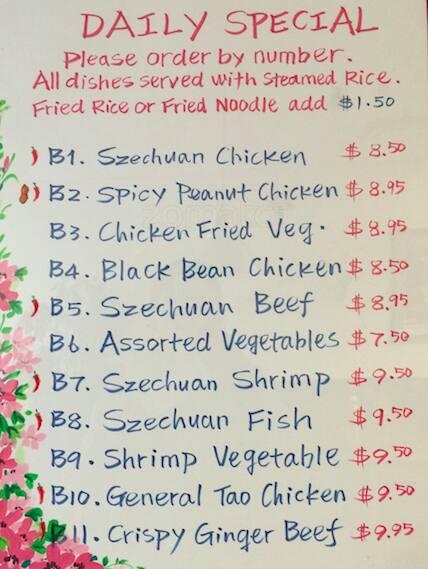 DAILY SPECIAL
Please order by number.
All dishes served with Steamed Rice.
Fried Rice or Fried Noodle add $1.50
B1. Szechuan Chicken $8.50
B2. Spicy Peanut Chicken $8.95
B3. Chicken Fried Veg. $8.95
B4. Black Bean Chicken $8.50
B5. Szechuan Beef $8.95
B6. Assorted Vegetables $7.50
B7. Szechuan Shrimp $9.50
B8. Szechuan Fish $9.50
B9. Shrimp Vegetable $9.50
B10. General Tao Chicken $9.50
B11. Crispy Ginger Beef $9.95